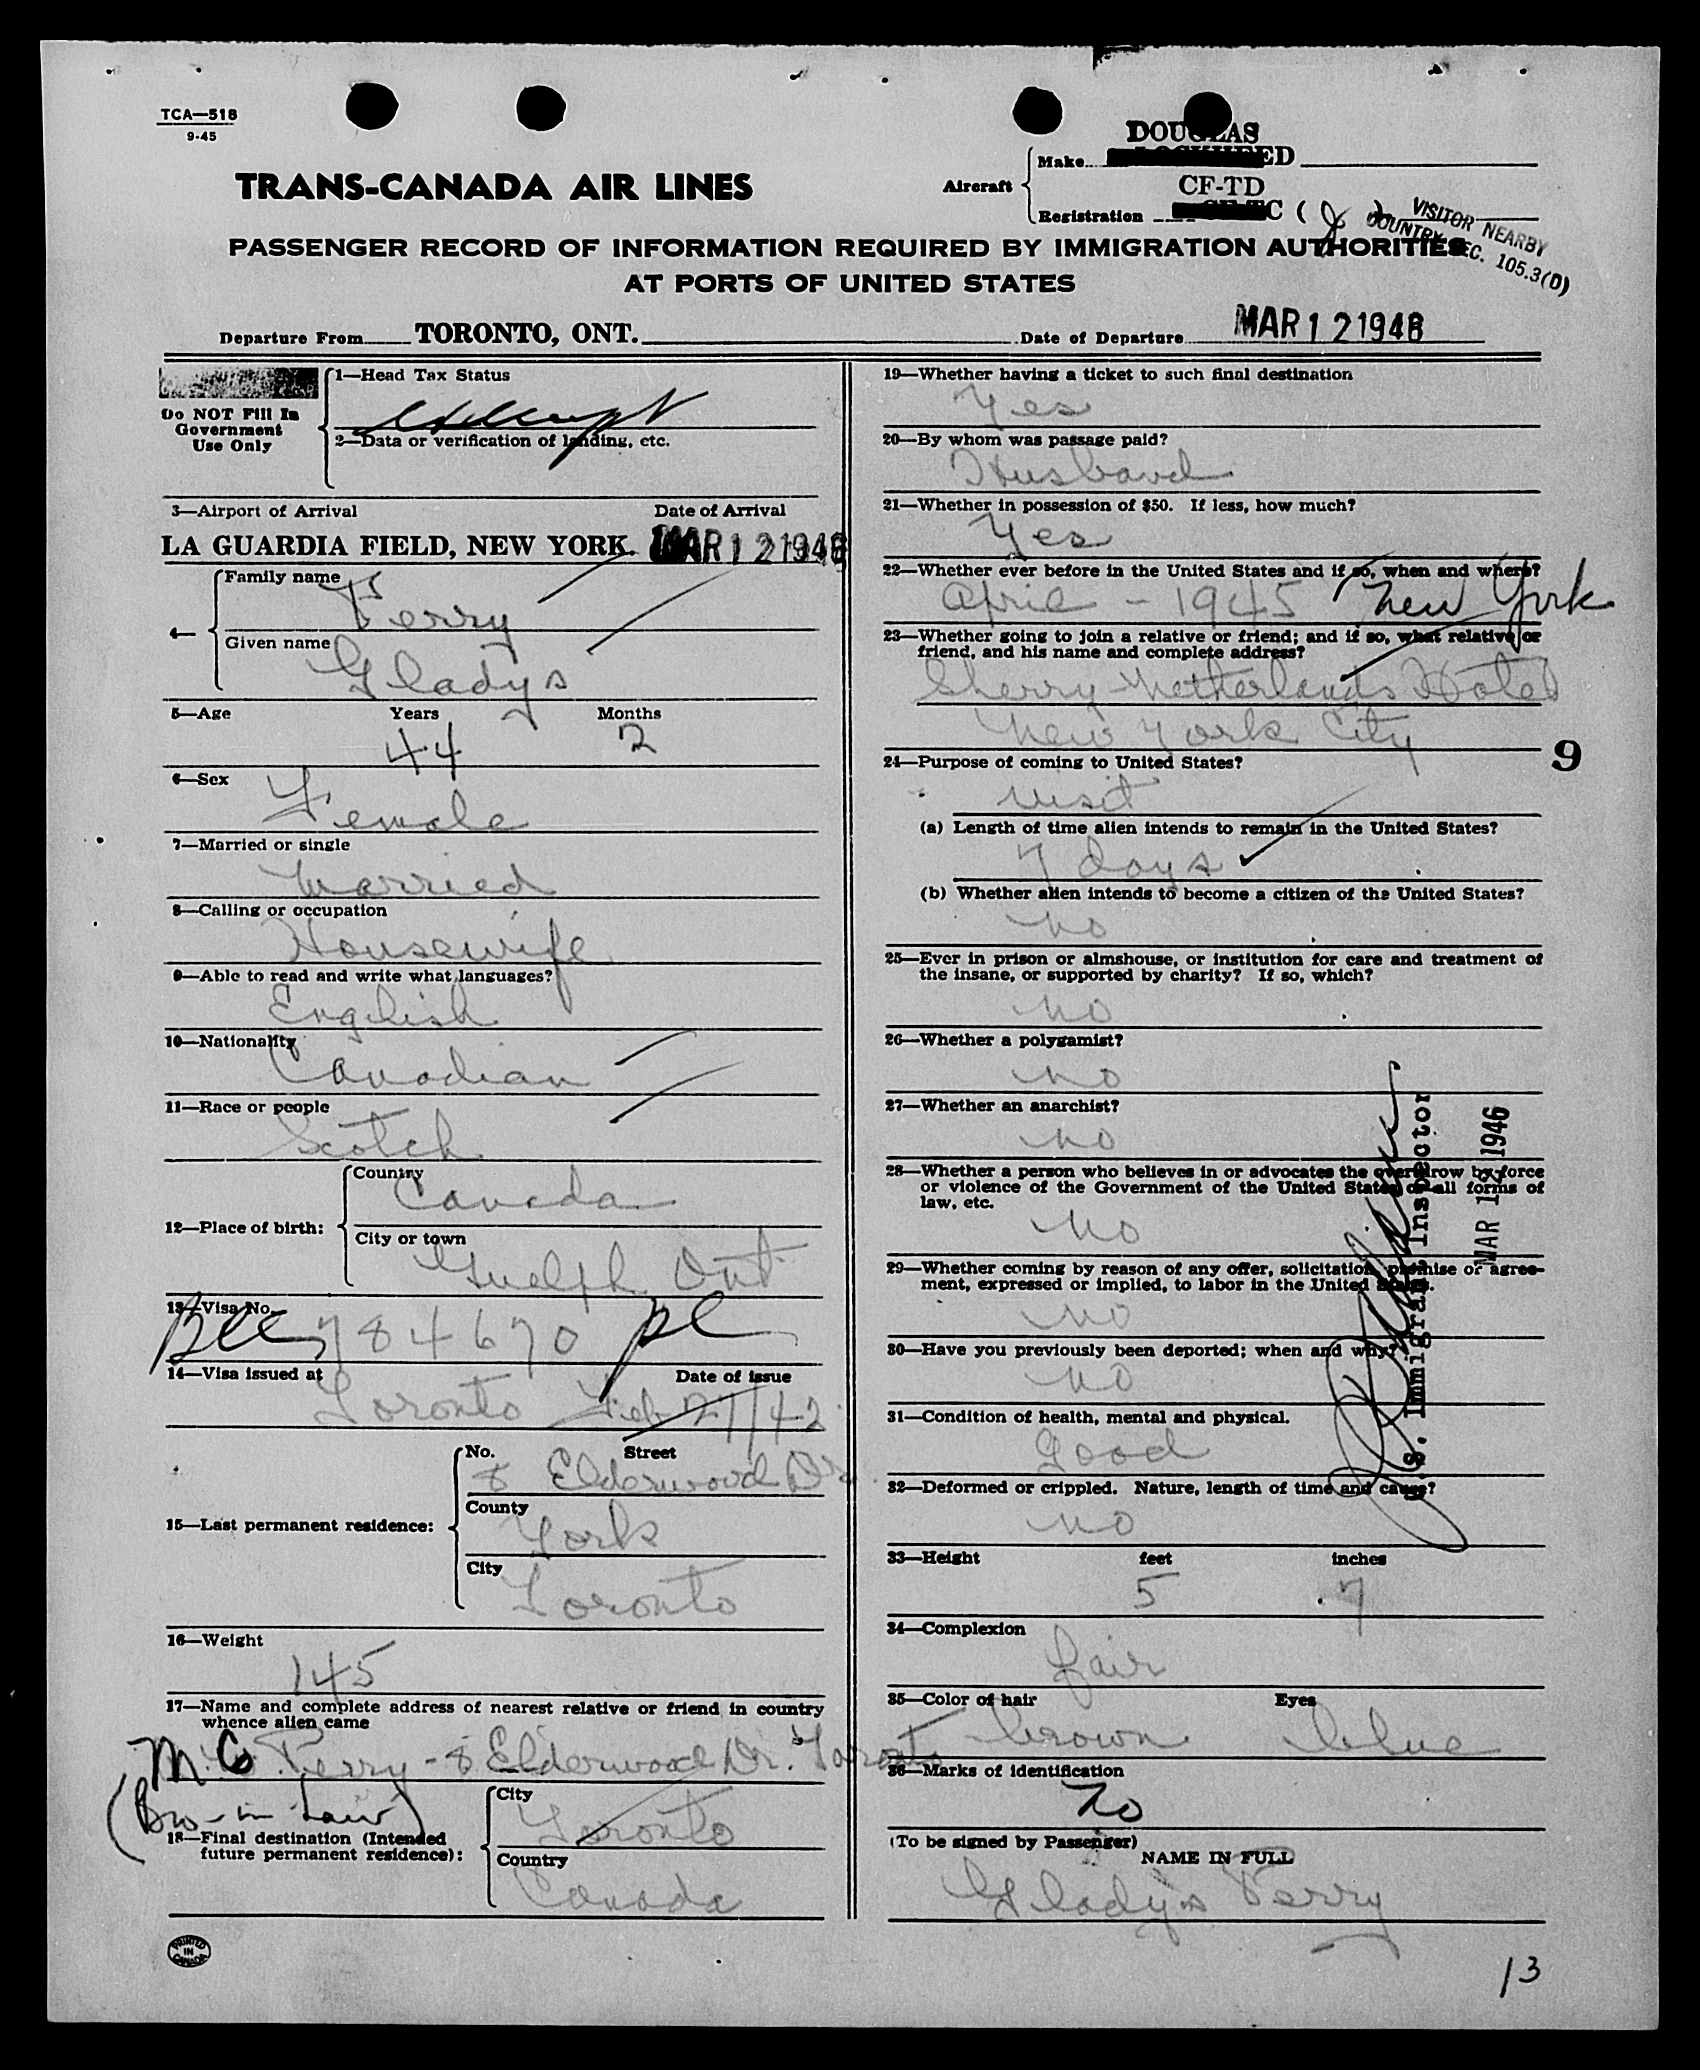 TCA—518
9-45
DOUGLAS
Make
TRANS-CANADA AIR LINES
Aircraft
CF-TD
Registration
VISITOR NEARBY
COUNTRY SEC. 105.3(D)
PASSENGER RECORD OF INFORMATION REQUIRED BY IMMIGRATION AUTHORITIES
AT PORTS OF UNITED STATES
Departure From TORONTO, ONT.
Date of Departure MAR 12 1946
Do NOT Fill In
Government
Use Only
1—Head Tax Status
2—Data or verification of landing, etc.
3—Airport of Arrival Date of Arrival
LA GUARDIA FIELD, NEW YORK. MAR 12 1946
4—
Family name
Perry
Given name
Gladys
5—Age Years Months
44 2
6—Sex
Female
7—Married or single
Married
8—Calling or occupation
Housewife
9—Able to read and write what languages?
English
10—Nationality
Canadian
11—Race or people
Scotch
12—Place of birth:
Country
Canada
City or town
Guelph Ont
13—Visa No.
784670
14—Visa issued at Date of issue
Toronto Feb 27/42
15—Last permanent residence:
No. Street
8 Elderwood Dr.
County
York
City
Toronto
16—Weight
145
17—Name and complete address of nearest relative or friend in country
whence alien came
M. G Perry - 8 Elderwood Dr. Toronto
(Bro-in-Law)
18—Final destination (Intended
future permanent residence):
City
Toronto
Country
Canada
PRINTED
IN
CANADA
19—Whether having a ticket to such final destination
Yes
20—By whom was passage paid?
Husband
21—Whether in possession of $50. If less, how much?
Yes
22—Whether ever before in the United States and if so, when and where?
April - 1945 New York
23—Whether going to join a relative or friend; and if so, what relative or
friend, and his name and complete address?
Sherry-Netherlands Hotel
New York City
9
24—Purpose of coming to United States?
Visit
(a) Length of time alien intends to remain in the United States?
7 days
(b) Whether alien intends to become a citizen of the United States?
No
25—Ever in prison or almshouse, or institution for care and treatment of
the insane, or supported by charity? If so, which?
No
26—Whether a polygamist?
No
27—Whether an anarchist?
No
28—Whether a person who believes in or advocates the overthrow by force
or violence of the Government of the United States or all forms of
law, etc.
No
29—Whether coming by reason of any offer, solicitation, promise or agree-
ment, expressed or implied, to labor in the United States.
No
30—Have you previously been deported; when and why?
No
31—Condition of health, mental and physical.
Good
32—Deformed or crippled. Nature, length of time and cause?
No
33—Height feet inches
5 7
34—Complexion
fair
35—Color of hair Eyes
brown blue
36—Marks of identification
No
(To be signed by Passenger)
NAME IN FULL
Gladys Perry
U.S. Immigrant Inspector
MAR 12 1946
13